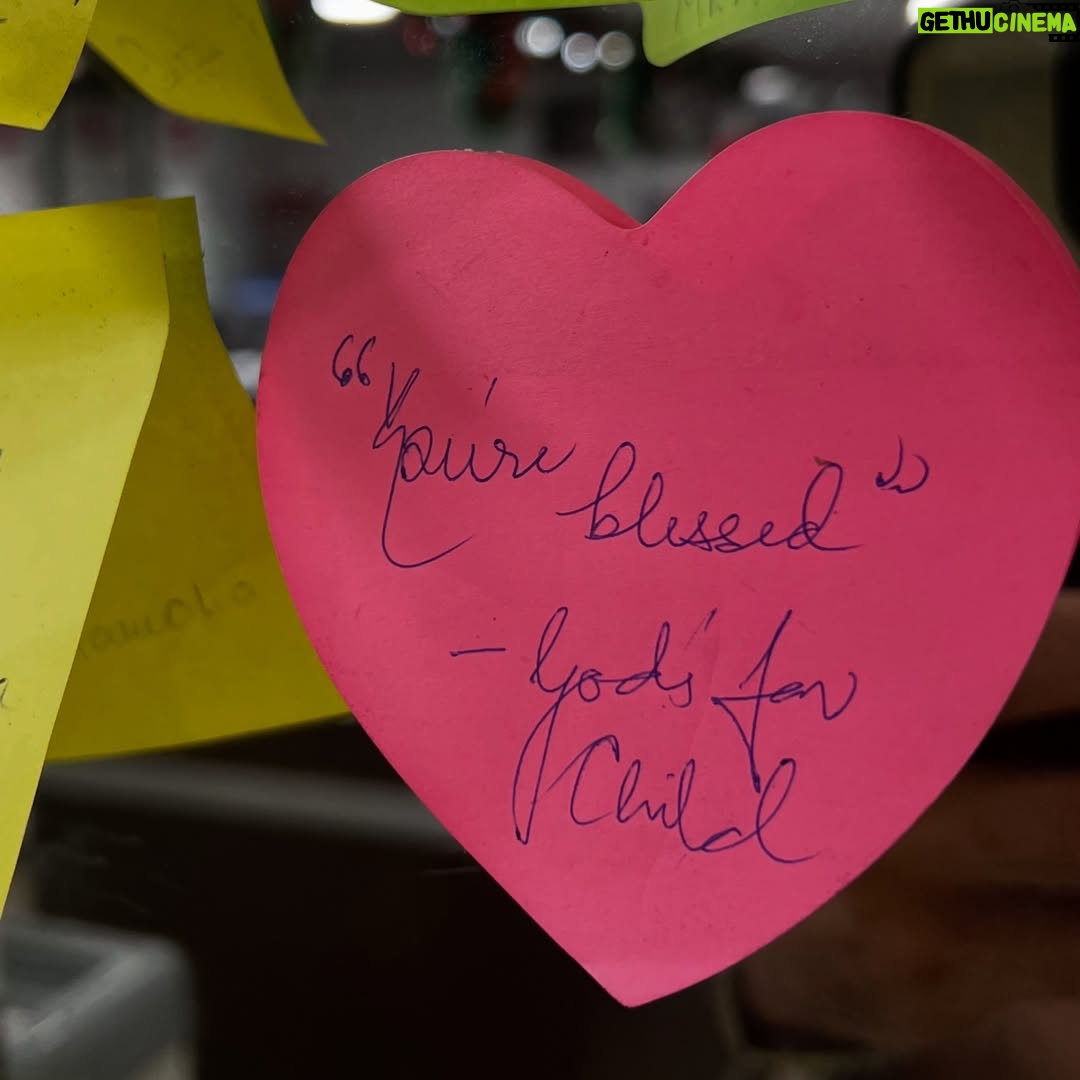 GETHUCINEMA
"You're blessed"
- God's fav
Child